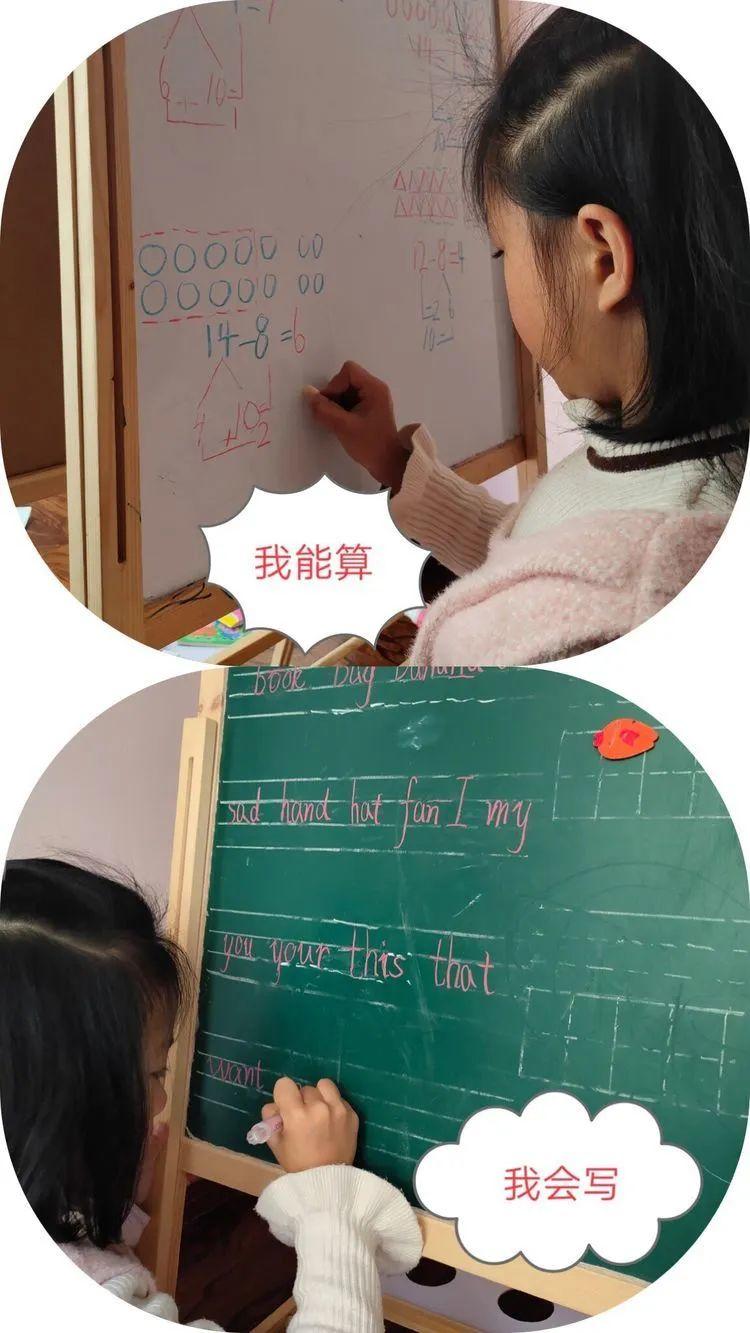 6 - 10 =
1
44
14-8=6
4 + 10 =
2
12-8=4
=2 6
10=
我能算
book bug banana
sad hand hat fan I my
you your this that
want
我会写